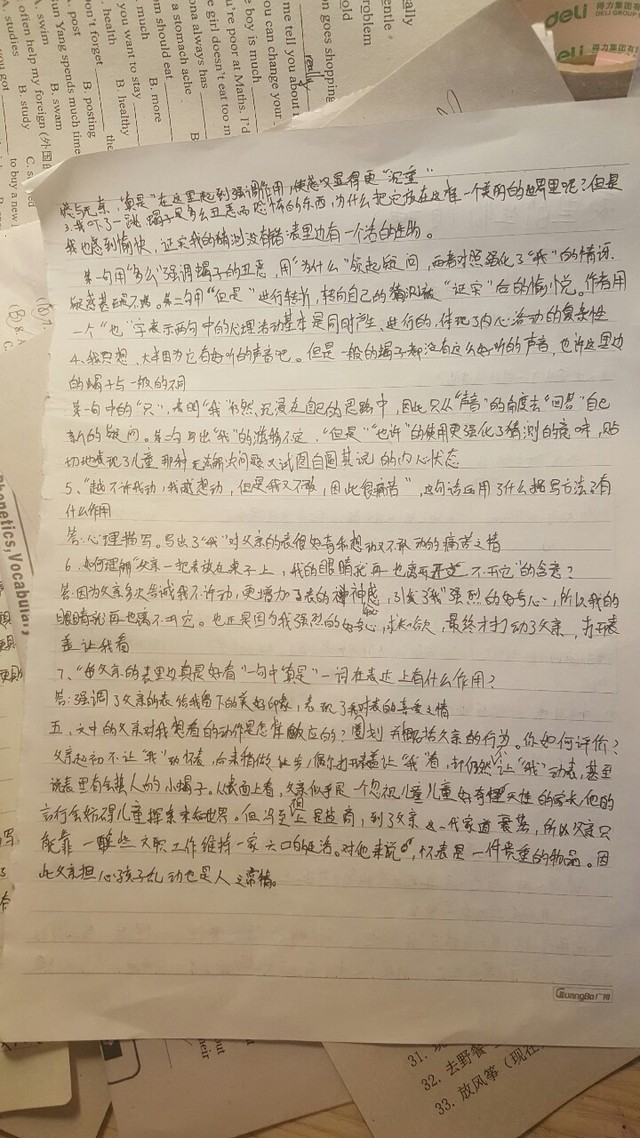 ally
entle
roblem
old
on goes shopping
really
me tell you about
ou can change your
're poor at Maths. I'd
e boy is much
e girl doesn't eat too m
ona always has
a stomach ache
m should eat
much B. more
you want to stay
health B. healthy
on't forget
post B. posting
un Yang spends much time
swim B. swam
often help my foreign (外国的
studies B. study
to buy a new
you got
deli 得力集团有
DELI GROUP
惑与无奈，“真是”在这里起到强调作用，使感叹显得更“沉重”
3.我吓了一跳，蝎子是多么丑恶而恐怖的东西，为什么把它放在这样一个美丽的世界里呢？但是
我也感到愉快，证实我的猜测没有错：表里边有一个活的生物。
第一句用“多么”强调蝎子的丑恶，用“为什么”领起疑问，两者对照强化了“我”的惊讶、
疑惑甚至是不满。第二句用“但是”进行转折，转向自己的猜测被“证实”后的愉悦。作者用
一个“也”字表示两句中的心理活动基本是同时产生、进行的，体现了内心活动的复杂性
4.我只想，大半因为它有好听的声音吧。但是一般的蝎子都没有这么好听的声音，也许这里边
的蝎子与一般的不同
第一句中的“只”，表明“我”仍然沉浸在自己的思路中，因此只从“声音”的角度去“回答”自己
新的疑问。第二句写出“我”的游移不定，“但是”“也许”的使用更强化了猜测的意味，贴
切地表现了儿童那种无法解决问题又试图自圆其说的内心状态
5、“越不许我动，我越想动，但是我又不敢，因此很痛苦”，这句话运用了什么描写方法？有
什么作用
答：心理描写。写出了“我”对父亲的表很好奇和想动又不敢动的痛苦之情
6、如何理解“父亲一把表放在桌子上，我的眼睛就再也离不开它”的含意？
答：因为父亲多次告诫我不许动，更增加了表的神秘感，引发了“我”强烈的好奇心，所以我的
眼睛就再也离不开它。也正是因为我强烈的好奇心，求知欲，最终才打动了父亲，打开表
盖让我看
7、“每父亲的表里边真是好看”一句中“真是”一词在表达上有什么作用？
答：强调了父亲的表给我留下的美好印象，表现了我对表的喜爱之情
五、文中的父亲对我想看的动作是怎样做反应的？圈划并概括父亲的行为。你如何评价？
父亲起初不让“我”动怀表，后来稍做让步，偶尔打开表盖让“我”看，却仍然不让“我”动表，甚至
说表里有会蜇人的小蝎子。从表面上看，父亲似乎是一个忽视儿童好奇探天性的家长，他的
言行会妨碍儿童探索未知世界。但冯至祖上是盐商，到了父亲这一代家道衰落，所以父亲只
能靠一些文职工作维持一家六口的生活。对他来说，怀表是一件贵重的物品。因
此父亲担心孩子乱动也是人之常情。
GuangBo 广博
Phonetics, Vocabulary
31.
32. 去野餐
33. 放风筝（现在
out
their